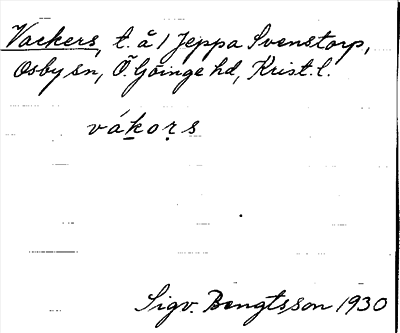 Vackers, t. å 1 Jeppa Svenstorp,
Osby sn, Ö. Göinge hd, Krist. l.
vákors
Sigv. Bengtsson 1930